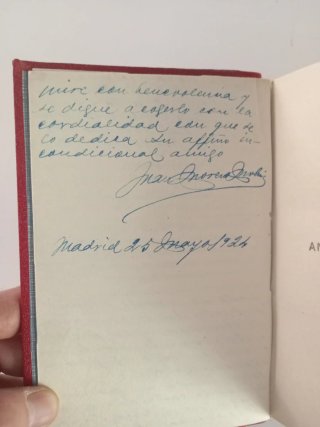 mire con benevolencia y
se digne acogerlo con la
cordialidad con que se
lo dedica su affmo in-
condicional amigo
Juan
Madrid 25 mayo 1924
A